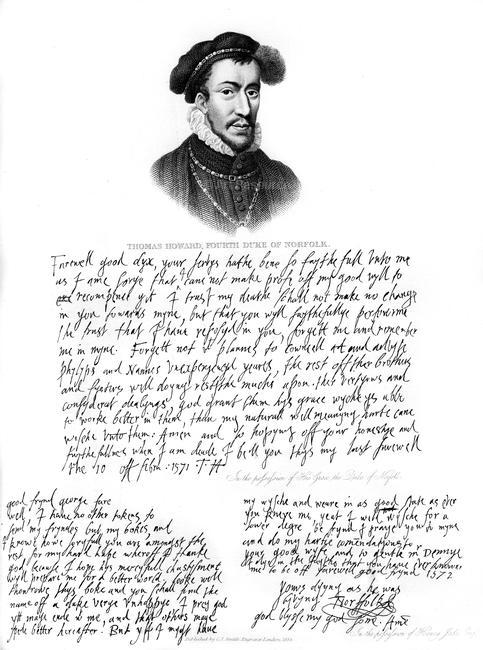 THOMAS HOWARD, FOURTH DUKE OF NORFOLK.
Farewell good dyx, your servys hathe bene so faythefull unto me
as I ame sorye that I cane not make profe off my good wyll to
recompence yt. I trust my deathe shall not make no change
in you towards myne, but that you wyll faythefullye performe
the trust that I have reposyd in you. forgett me and remember
me in myne. Forgett not to
phylyps and Nannes unexperyencyd yeares, the rest off ther brothers
and systers well doynge restythe muche upon. ther vertyows and
consyderat dealyngs, god grant them hys grace wyche ys able
to worke better in them, then my naturall well meanyng harte cane
wysche unto them. Amen and so hopyng off your honestye and
faythefullnes when I ame deade I bell you thys my last farewell
the 10 off febr. 1571 T H
In the possession of His Grace the Duke of Norfolk.
good frynd george fare
well I have no other tokens to
send my fryndes but my bokes and
I knowe howe you are amongst the
rest for my hard happe wheroff I thanke
god because I hope hys mercyfull chastyment
wyll prepare me for a better world, looke well
thorowe thys boke and you shall fynd the
name off a duke verye unhappye I pray god
yt maye ende w me, and that others maye
spede better hereafter. But yff I myght have
my wysche and weare in as good state as ever
you knewe me, yeat I will wysche for a
lower degre be frynd I praye you to myne
and do my hartie comendations to
your good wyfe and to gentle
the faythe that you have ever knowen
me to be off farewell good frynd 1572
Yowrs dyeng as he was
lyvyng Norfolke
god blysse my god sone. Ame
In the possession of
Published by C.J. Smith, Engraver London,